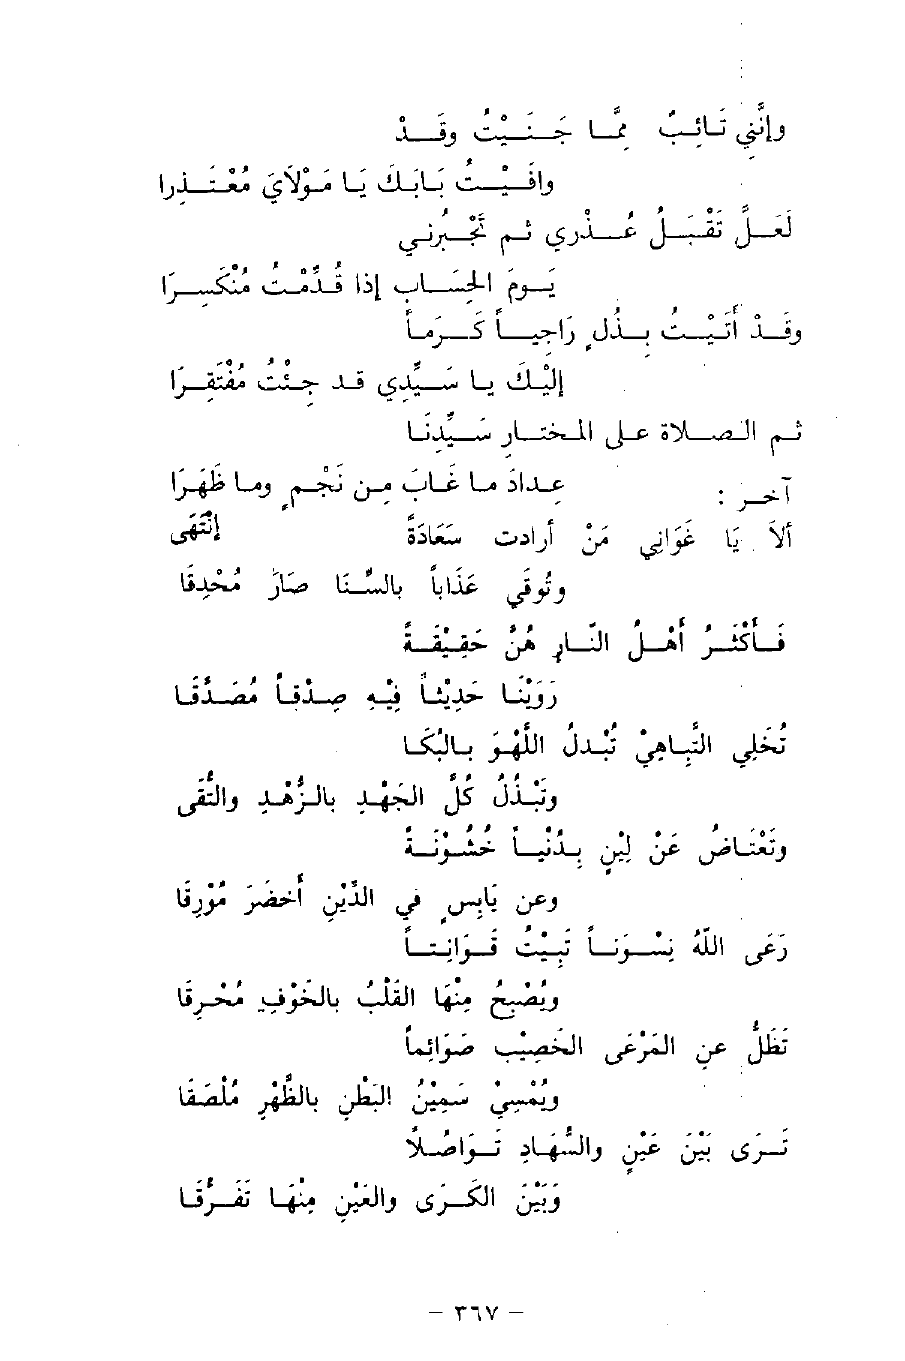 وإنَّني تَائِبٌ مِمَّا جَنَيْتُ وقَدْ
وافَيْتُ بَابَكَ يَا مَوْلَايَ مُعْتَذِرا
لَعَلَّ تَقْبَلُ عُذْرِي ثم تَجْبُرني
يَومَ الحِسَابِ إذا قُدِّمْتُ مُنْكَسِرَا
وقَدْ أَتَيْتُ بِذُلٍ رَاجِياً كَرَماً
إلَيْكَ يا سَيِّدي قد جِئْتُ مُفْتَقِرَا
ثم الصلاة على المختارِ سَيِّدِنَا
عِدادَ ما غَابَ مِن نَجْمٍ وما ظَهَرَا
آخر :
ألاَ يَا غَوَانِي مَنْ أرادت سَعَادَةً إنْتَهَى
وتُوقَي عَذَاباً بالنِّسَا صَارَ مُحْدِقَا
فَأَكْثَرُ أَهْلُ النَّارِ هُنَّ حَقِيْقَةً
رَوَيْنَا حَدِيْثاً فِيْهِ صِدْقاً مُصَدَّقَا
تُخَلِي التَّبَاهِيْ تُبْدِلُ اللَّهْوَ بِالبُكَا
وتَبْذُلُ كُلَّ الجَهْدِ بالزُّهْدِ والتُّقَى
وتَعْتَاضُ عَنْ لِيْنٍ بِدُنْياً خُشُوْنَةً
وعن يَابِسٍ في الدِّيْنِ أَخضَرَ مُوْرِقَا
رَعَى اللهُ نِسْوَناً تَبِيْتُ قَوَانِتاً
ويُصْبِحُ مِنْهَا القَلْبُ بالخَوْفِ مُحْرِقَا
تَظَلُّ عن المَرْعَى الخَصِيْبِ صَوَائِماً
ويُمْسِيْ سَمِيْنُ البَطْنِ بالظَّهْرِ مُلْصَقَا
تَرَى بَيْنَ عَيْنٍ والسُّهَادِ تَوَاصُلاً
وَبَيْنَ الكَرَى والعَيْنِ مِنْهَا تَفَرُّقَا
– ٣٦٧ –